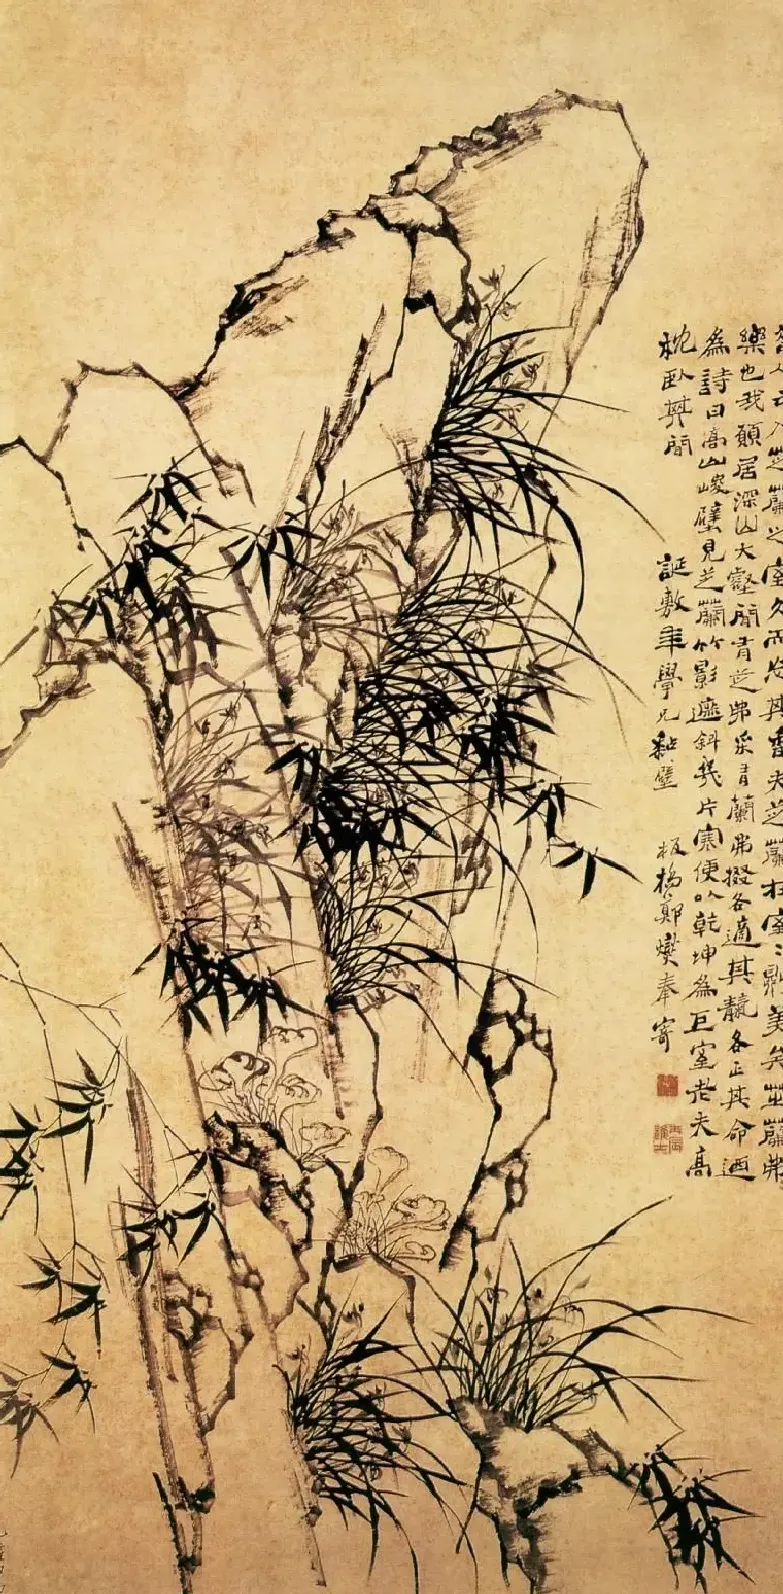 昔人云入芝蘭之室久而忘其香夫芝蘭在室室則美矣芝蘭弗
樂也我願居深山大壑間有芝弗采有蘭弗掇各適其天各正其命迺
為詩曰高山峻壁見芝蘭竹影遮斜幾片寒便以乾坤為巨室老夫高
枕臥其間
誕敷年學兄粘壁
板橋鄭燮奉寄